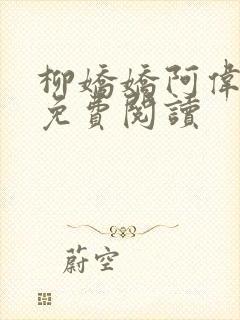 柳嬌嬌阿偉
免費閱讀
蔚空